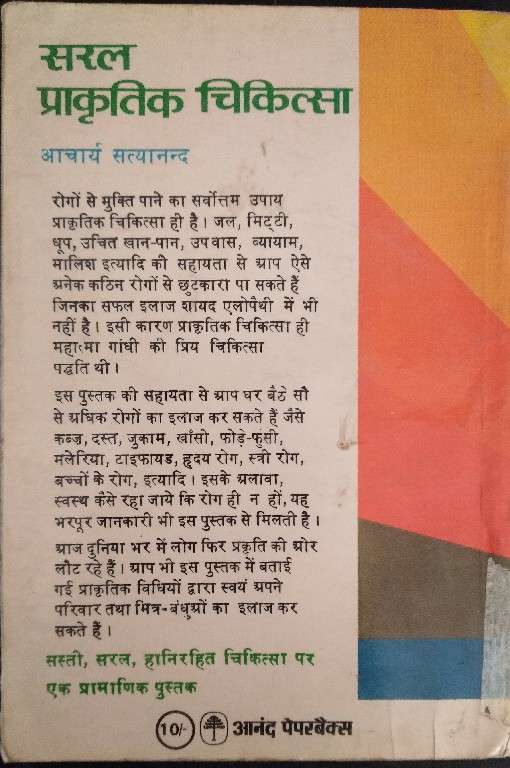 सरल
प्राकृतिक चिकित्सा
आचार्य सत्यानन्द
रोगों से मुक्ति पाने का सर्वोत्तम उपाय
प्राकृतिक चिकित्सा ही है। जल, मिट्टी,
धूप, उचित खान-पान, उपवास, व्यायाम,
मालिश इत्यादि की सहायता से आप ऐसे
अनेक कठिन रोगों से छुटकारा पा सकते हैं
जिनका सफल इलाज शायद एलोपैथी में भी
नहीं है। इसी कारण प्राकृतिक चिकित्सा ही
महात्मा गांधी की प्रिय चिकित्सा
पद्धति थी।
इस पुस्तक की सहायता से आप घर बैठे सौ
से अधिक रोगों का इलाज कर सकते हैं जैसे
कब्ज, दस्त, जुकाम, खाँसी, फोड़े-फुंसी,
मलेरिया, टाइफायड, हृदय रोग, स्त्री रोग,
बच्चों के रोग, इत्यादि। इसके अलावा,
स्वस्थ कैसे रहा जाये कि रोग ही न हों, यह
भरपूर जानकारी भी इस पुस्तक से मिलती है।
आज दुनिया भर में लोग फिर प्रकृति की ओर
लौट रहे हैं। आप भी इस पुस्तक में बताई
गई प्राकृतिक विधियों द्वारा स्वयं अपने
परिवार तथा मित्र-बंधुओं का इलाज कर
सकते हैं।
सस्ती, सरल, हानिरहित चिकित्सा पर
एक प्रामाणिक पुस्तक
10/- आनंद पेपरबैक्स